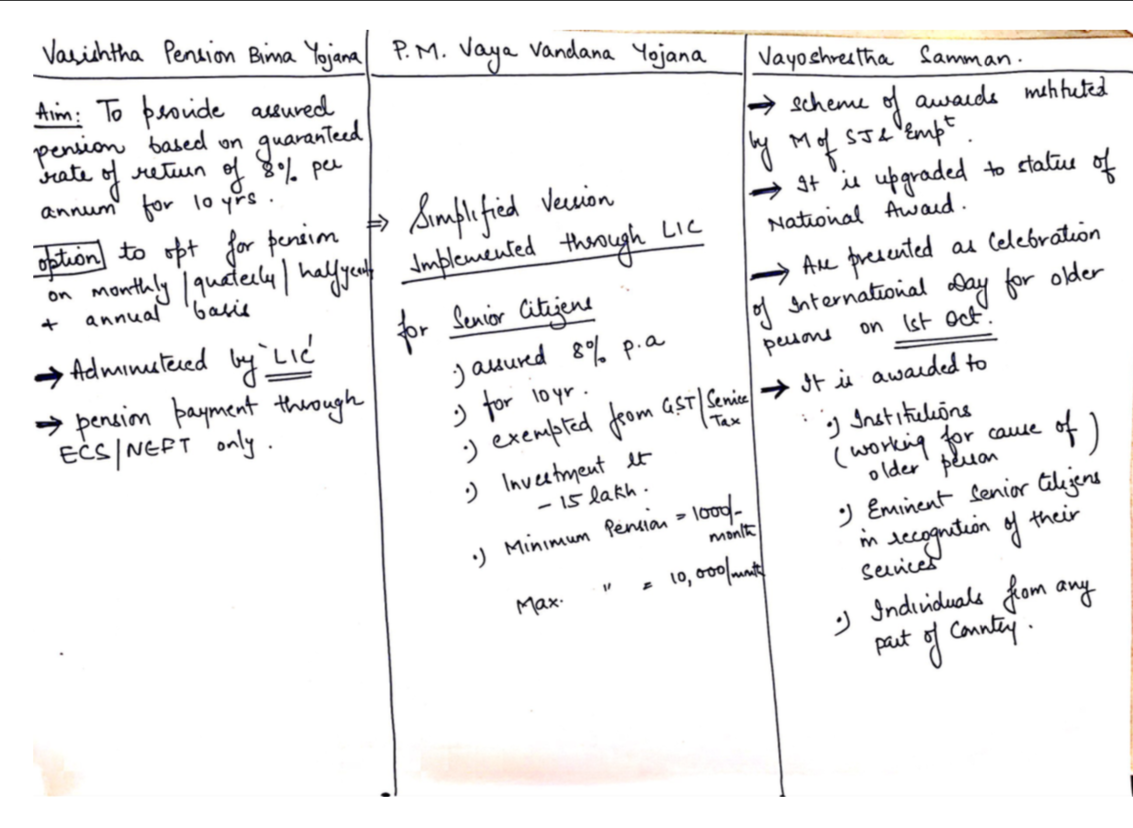 Varishtha Pension Bima Yojana
Aim: To provide assured
pension based on guaranteed
rate of return of 8% per
annum for 10 yrs.
option to opt for pension
on monthly | quaterly | halfyearly
+ annual basis
→ Administered by 'LIC'
→ pension payment through
ECS/NEFT only.
P.M. Vaya Vandana Yojana
⇒ Simplified Version
Implemented through LIC
for Senior Citizens
·) assured 8% p.a
·) for 10yr.
·) exempted from GST | Service
Tax
·) Investment lt
- 15 lakh.
·) Minimum Pension = 1000/-
month
Max. " = 10,000/month
Vayoshrestha Samman.
→ scheme of awards instituted
by M of SJ & Empt.
→ It is upgraded to status of
National Award.
→ Are presented as Celebration
of International Day for older
persons on 1st Oct.
→ It is awarded to
·) Institutions
(working for cause of)
older person
·) Eminent Senior Citizens
in recognition of their
services
·) Individuals from any
part of Country.